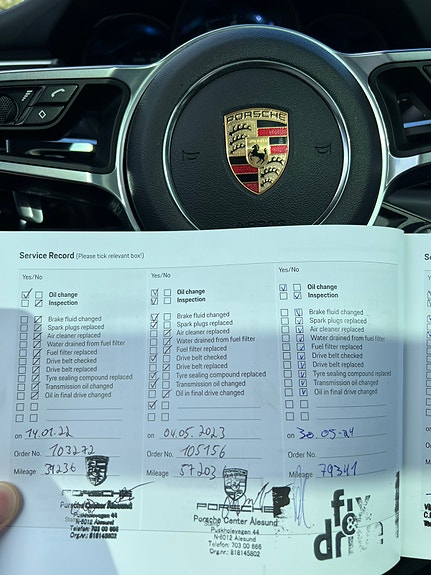 PORSCHE
Service Record (Please tick relevant box!)
Yes/No
Oil change
Inspection
Brake fluid changed
Spark plugs replaced
Air cleaner replaced
Water drained from fuel filter
Fuel filter replaced
Drive belt checked
Drive belt replaced
Tyre sealing compound replaced
Transmission oil changed
Oil in final drive changed
on 14.01.22
Order No. 103272
Mileage 39236
PORSCHE
Porsche Center Ålesund
Puskholevegen 44
N-6012 Ålesund
Telefon: 703 00 666
Org.nr.: 818145802
Yes/No
Oil change
Inspection
Brake fluid changed
Spark plugs replaced
Air cleaner replaced
Water drained from fuel filter
Fuel filter replaced
Drive belt checked
Drive belt replaced
Tyre sealing compound replaced
Transmission oil changed
Oil in final drive changed
on 04.05.2023
Order No. 105156
Mileage 57203
PORSCHE
Porsche Center Ålesund
Puskholevegen 44
N-6012 Ålesund
Telefon: 703 00 666
Org.nr.: 818145802
Yes/No
Oil change
Inspection
Brake fluid changed
Spark plugs replaced
Air cleaner replaced
Water drained from fuel filter
Fuel filter replaced
Drive belt checked
Drive belt replaced
Tyre sealing compound replaced
Transmission oil changed
Oil in final drive changed
on 30.05-24
Order No.
Mileage 79341
fix
&
drive